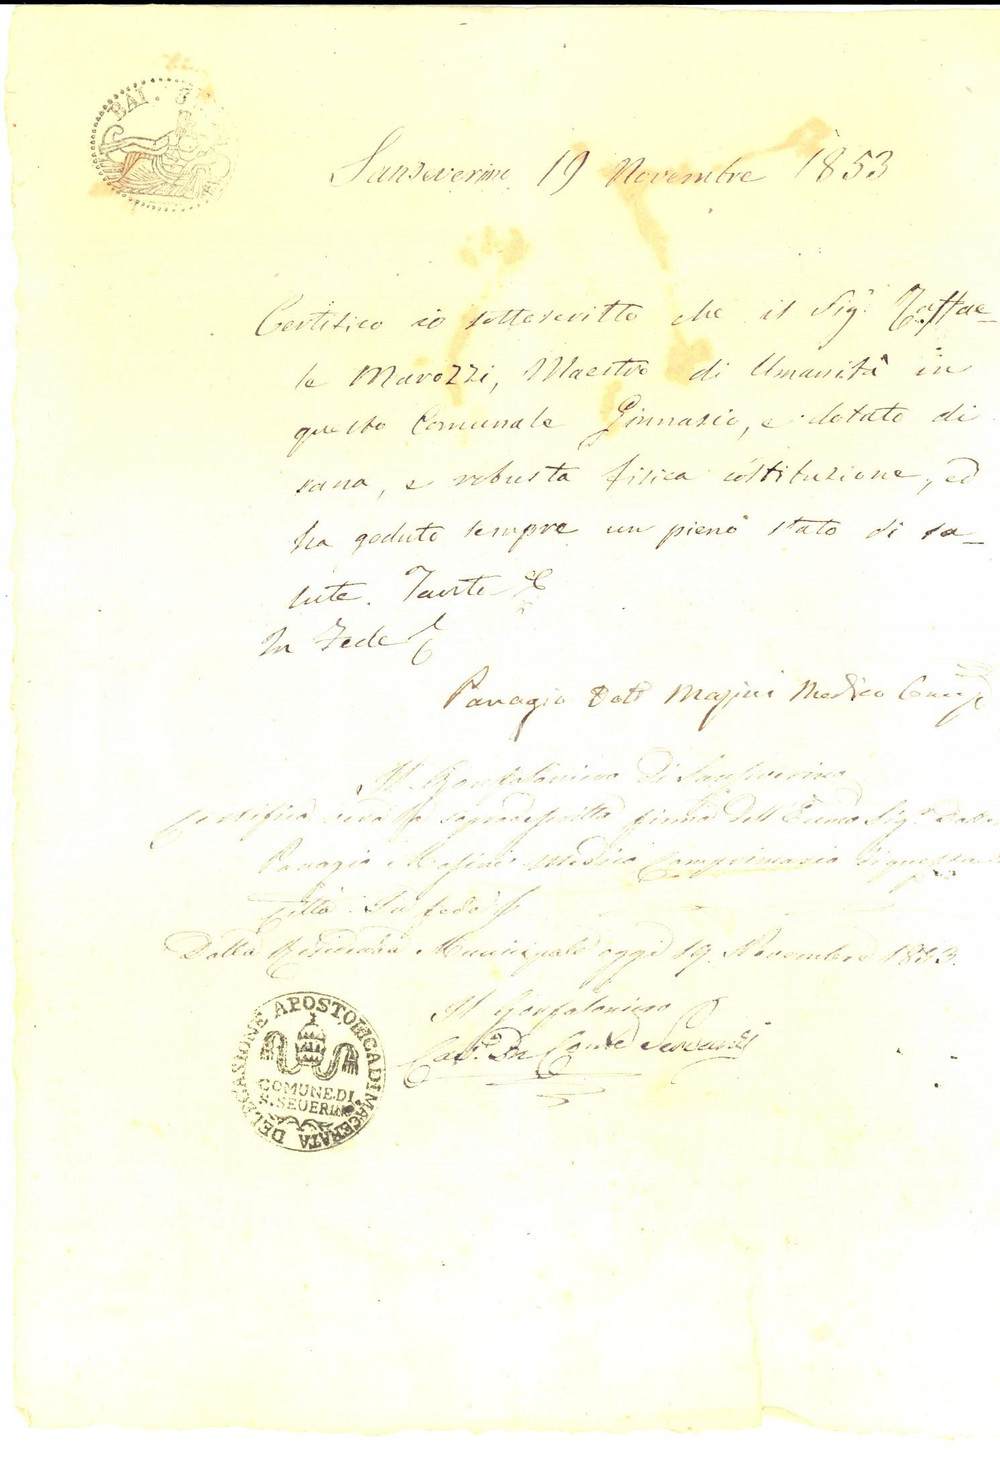 BAI. 3
Sanseverino 19 Novembre 1853
Certifico io sottoscritto che il Sig.r Raffae-
le Marozzi, Maestro di Umanità in
questo Comunale Ginnasio, e dotato di
sana, e robusta fisica costituzione, ed
ha goduto sempre un pieno stato di sa-
lute. Tanto &
In Fede
Panagio Dott Masini Medico
Il Gonfaloniere di Sanseverino
Certifica vera la sopradescritta firma dell' Sig.r
Panagio Masini Medico Comprimario di questa
Città. In fede
Dalla Residenza Municipale oggi 19 Novembre 1853.
Il Gonfaloniere
Cav.r Conte Servanzi
DELEGASIONE APOSTOLICA DI MACERATA
COMUNE DI
S. SEUERINO